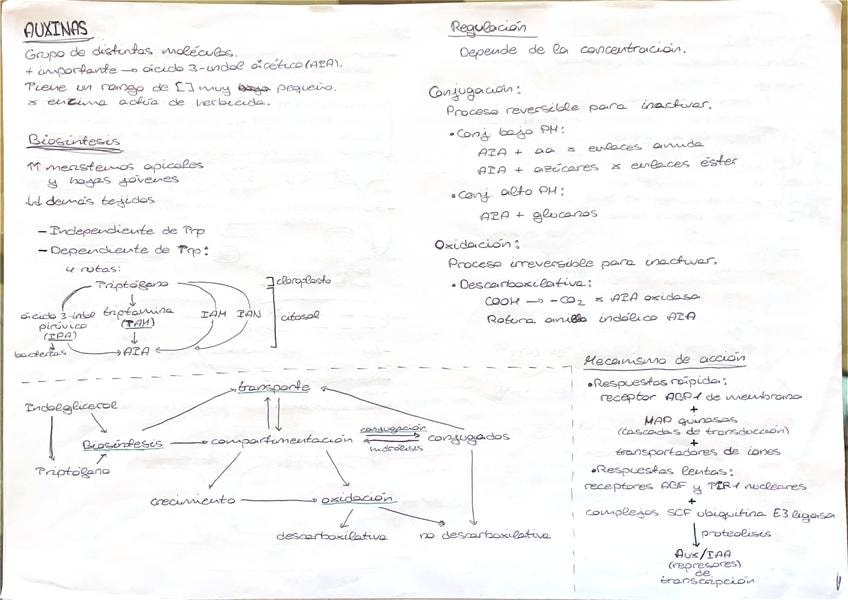 AUXINAS
Grupo de distintas moléculas.
+ importante → ácido 3-indol acético (AIA).
Tiene un rango de [] muy pequeño.
x encima actúa de herbicida.
Biosíntesis
↑↑ meristemos apicales
y hojas jóvenes
↓↓ demás tejidos
- Independiente de Trp
- Dependiente de Trp:
4 rutas:
Triptófano
ácido 3-indol pirúvico (IPA)
triptamina (TAM)
IAM IAN
bacterias → AIA
cloroplasto
citosol
Regulación
Depende de la concentración.
Conjugación:
Proceso reversible para inactivar.
• Conj bajo PM:
AIA + aa x enlaces amida
AIA + azúcares x enlaces éster
• Conj. alto PM:
AIA + glucanos
Oxidación:
Proceso irreversible para inactivar.
• Descarboxilativa:
COOH → -CO₂ x AIA oxidasa
Rotura anillo indólico AIA
transporte
Indolglicerol
Biosíntesis → compartimentación
conjugación
hidrólisis
conjugados
Triptófano
crecimiento → oxidación
descarboxilativa no descarboxilativa
Mecanismo de acción
• Respuestas rápida:
receptor ABP1 de membrana
+
MAP quinasas
(cascadas de transducción)
+
transportadores de iones
• Respuestas lentas:
receptores ABF y TIR1 nucleares
+
complejos SCF ubiquitina E3 ligasa
↓ proteolisis
Aux/IAA
(represores)
de
transcripción